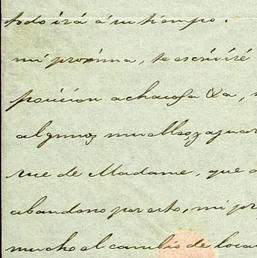 todo irá á su tiempo.
mi proxima, te escriviré
posicion achacosa &a,
algunos muebles, y aguar
rue de Madame, que
abandono por esto, mi pr
mucho al cambio de loca